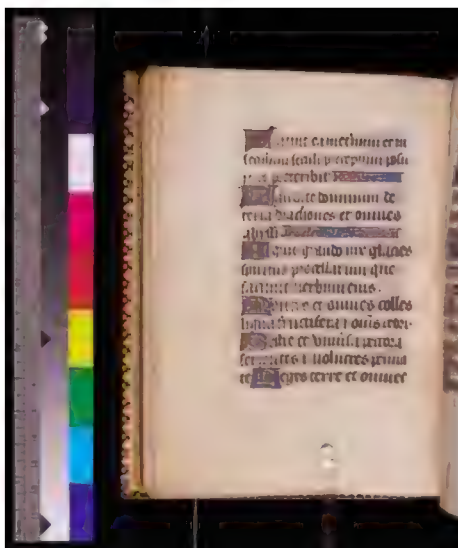 Statuit ea in eternum et in
seculum seculi preceptum posu
preteribit
Laudate dominum de
terra dracones et omnes
abyssi
Ignis grando nix glacies
spiritus procellarum que
faciunt verbum eius.
Montes et omnes colles
ligna fructifera ⁊ om̄s cedri.
Bestie et univ̄sa pecora
serpentes ⁊ volucres penna
te Reges terre et omnes